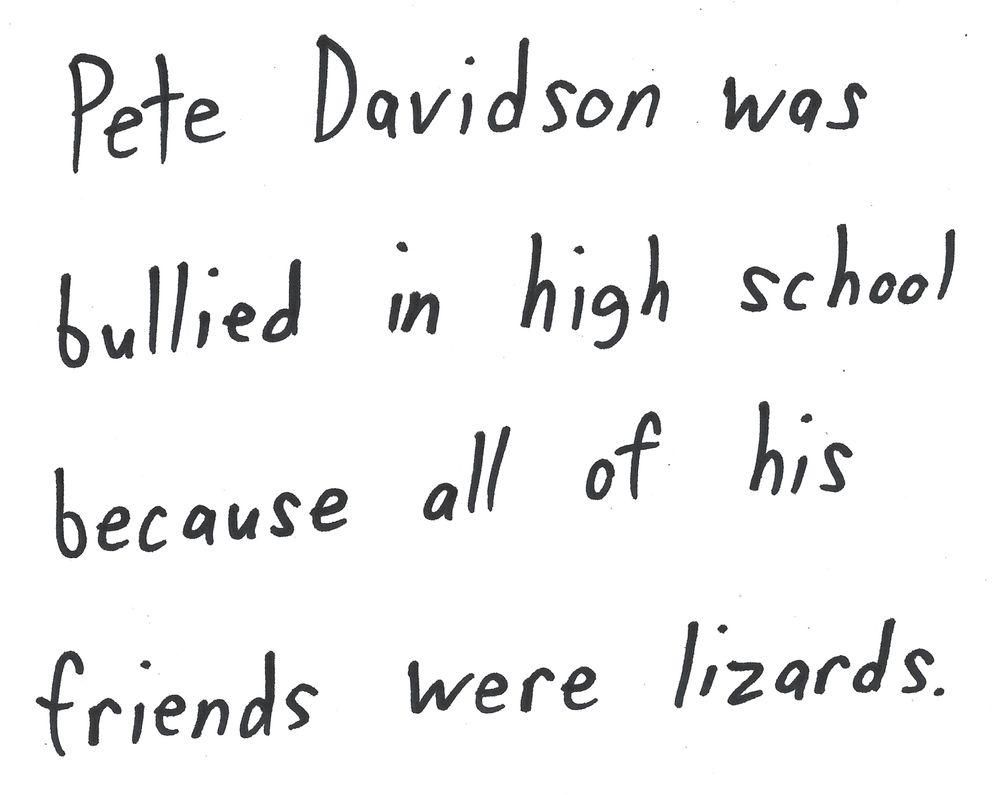 Pete Davidson was
bullied in high school
because all of his
friends were lizards.